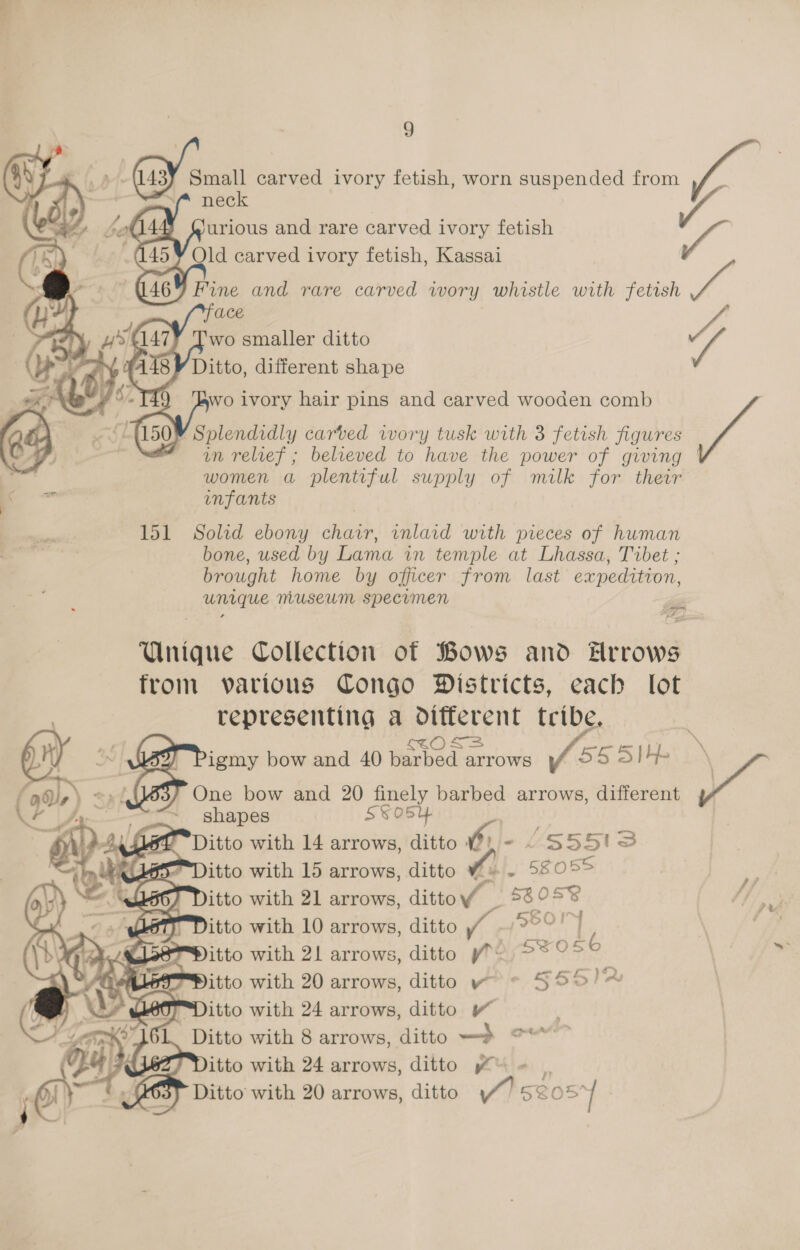 9
143 Small carved ivory fetish, worn suspended from
neck
144 Curious and rare carved ivory fetish
145 Old carved ivory fetish, Kassai
146 Fine and rare carved ivory whistle with fetish
face
147 Two smaller ditto
148 Ditto, different shape
149 Two ivory hair pins and carved wooden comb
150 Splendidly carved ivory tusk with 3 fetish figures
in relief ; believed to have the power of giving
women a plentiful supply of milk for their
infants
151 Solid ebony chair, inlaid with pieces of human
bone, used by Lama in temple at Lhassa, Tibet ;
brought home by officer from last expedition,
unique museum specimen
Unique Collection of Bows and Arrows
from various Congo Districts, each lot
representing a different tribe.
152 Pigmy bow and 40 barbed arrows 55514
153 One bow and 20 finely barbed arrows, different
shapes 58054
154 Ditto with 14 arrows, ditto 55513
155 Ditto with 15 arrows, ditto 58055
156 Ditto with 21 arrows, ditto 58058
157 Ditto with 10 arrows, ditto
158 Ditto with 21 arrows, ditto 58056
159 Ditto with 20 arrows, ditto 55512
160 Ditto with 24 arrows, ditto
161 Ditto with 8 arrows, ditto
162 Ditto with 24 arrows, ditto
163 Ditto with 20 arrows, ditto 58057